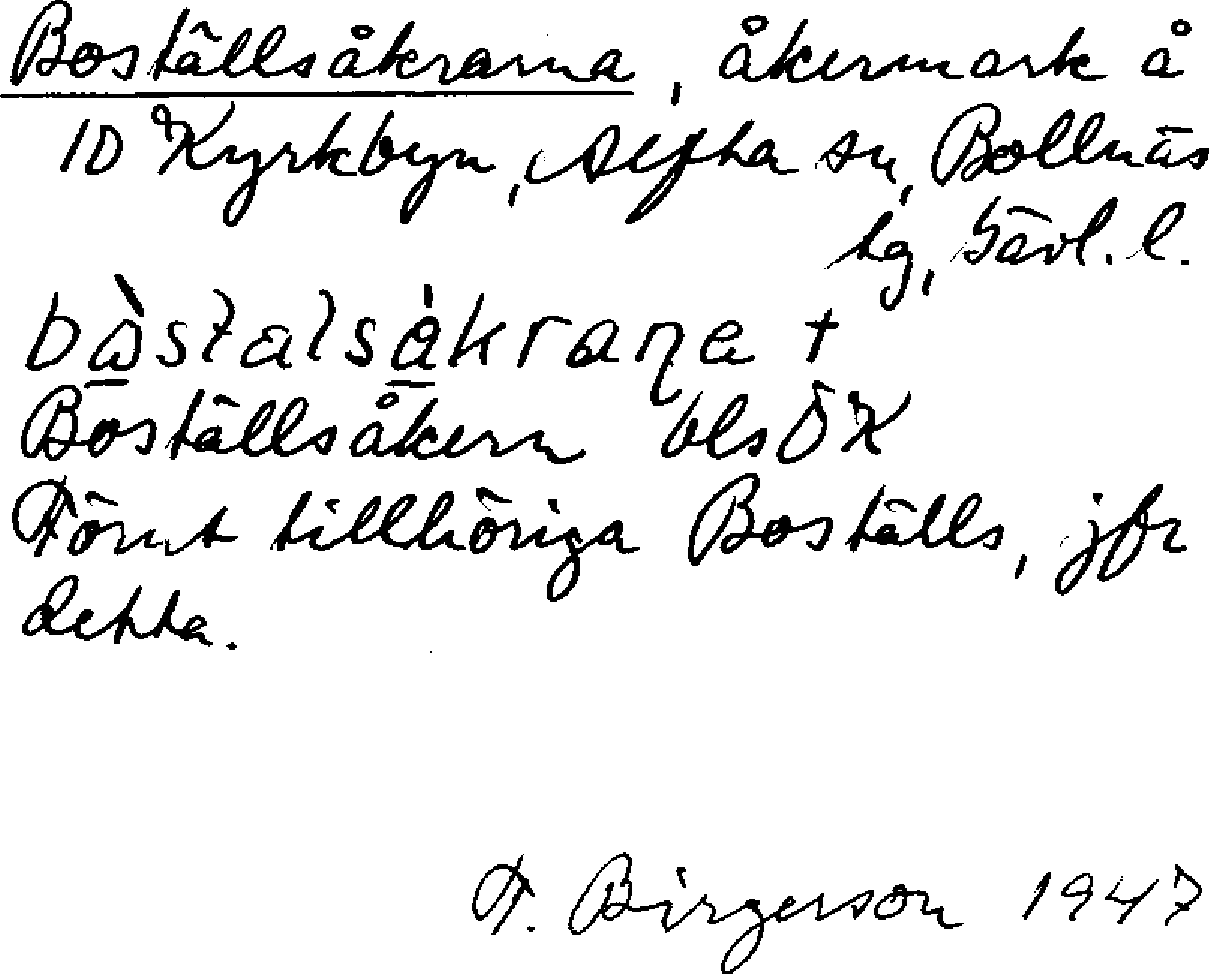 Boställsåkrarna, åkermark å
10 Kyrkbyn, Alfta sn, Bollnäs
tg, Gävl. l.
Boställsåkern
Förut tillhöriga Boställs, jfr
detta.
F. Birgerson 1947